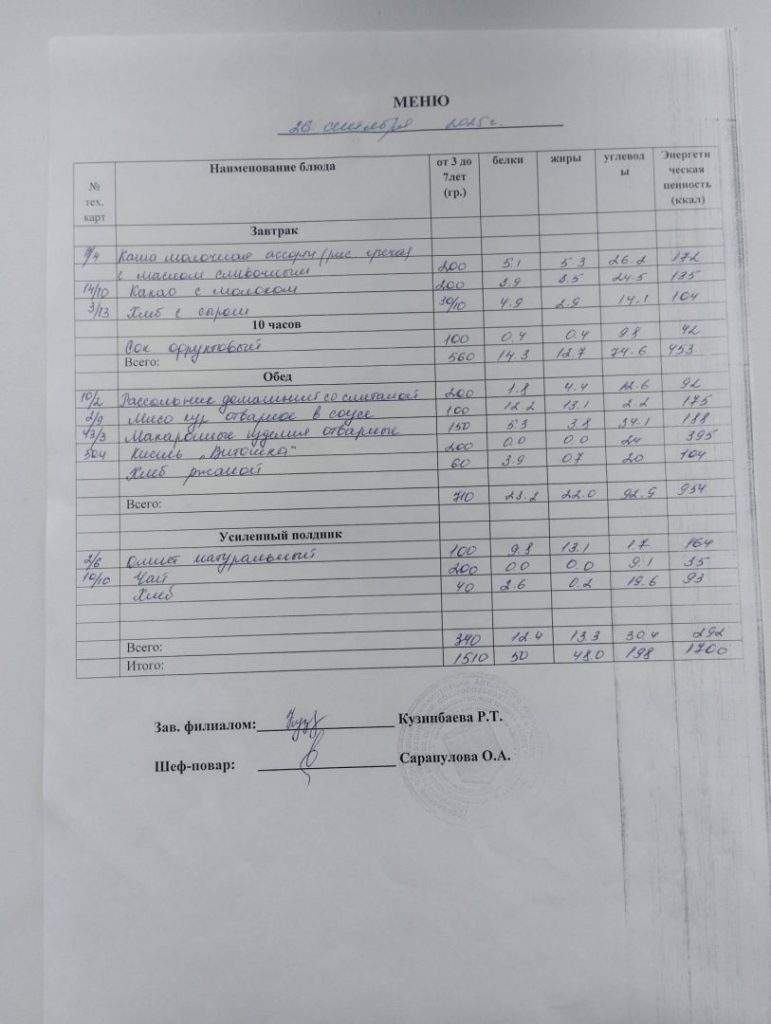 МЕНЮ
26 сентября 2025г.
№ тех. карт Наименование блюда от 3 до 7лет (гр.) белки жиры углеводы Энергетическая ценность (ккал)
Завтрак
/4 Каша молочная ассорти (рис. греча)
с маслом сливочным 200 5.1 5.3 26.2 172
14/10 Какао с молоком 200 3.9 3.5 24.5 135
3/13 Хлеб с сыром 30/10 4.9 2.9 14.1 104
10 часов
Сок фруктовый 100 0,4 0.4 9.8 42
Всего: 560 14.3 12.7 74.6 453
Обед
10/2 Рассольник домашний со сметаной 200 1.8 4.4 12.6 92
2/9 Мясо кур отварное в соусе 100 12.2 13.1 2.2 175
43/3 Макаронные изделия отварные 150 5.3 3.8 34.1 188
504 Кисель „Витошка" 200 0.0 0.0 24 395
Хлеб ржаной 60 3.9 0.7 20 104
Всего: 710 23.2 22.0 92.9 954
Усиленный полдник
2/6 Омлет натуральный 100 9.8 13.1 1.7 164
10/10 Чай 200 0.0 0.0 9.1 35
Хлеб 40 2.6 0.2 19.6 93
Всего: 340 12.4 13.3 30.4 292
Итого: 1510 50 48.0 198 1700
Зав. филиалом: Кузинбаева Р.Т.
Шеф-повар: Сарапулова О.А.